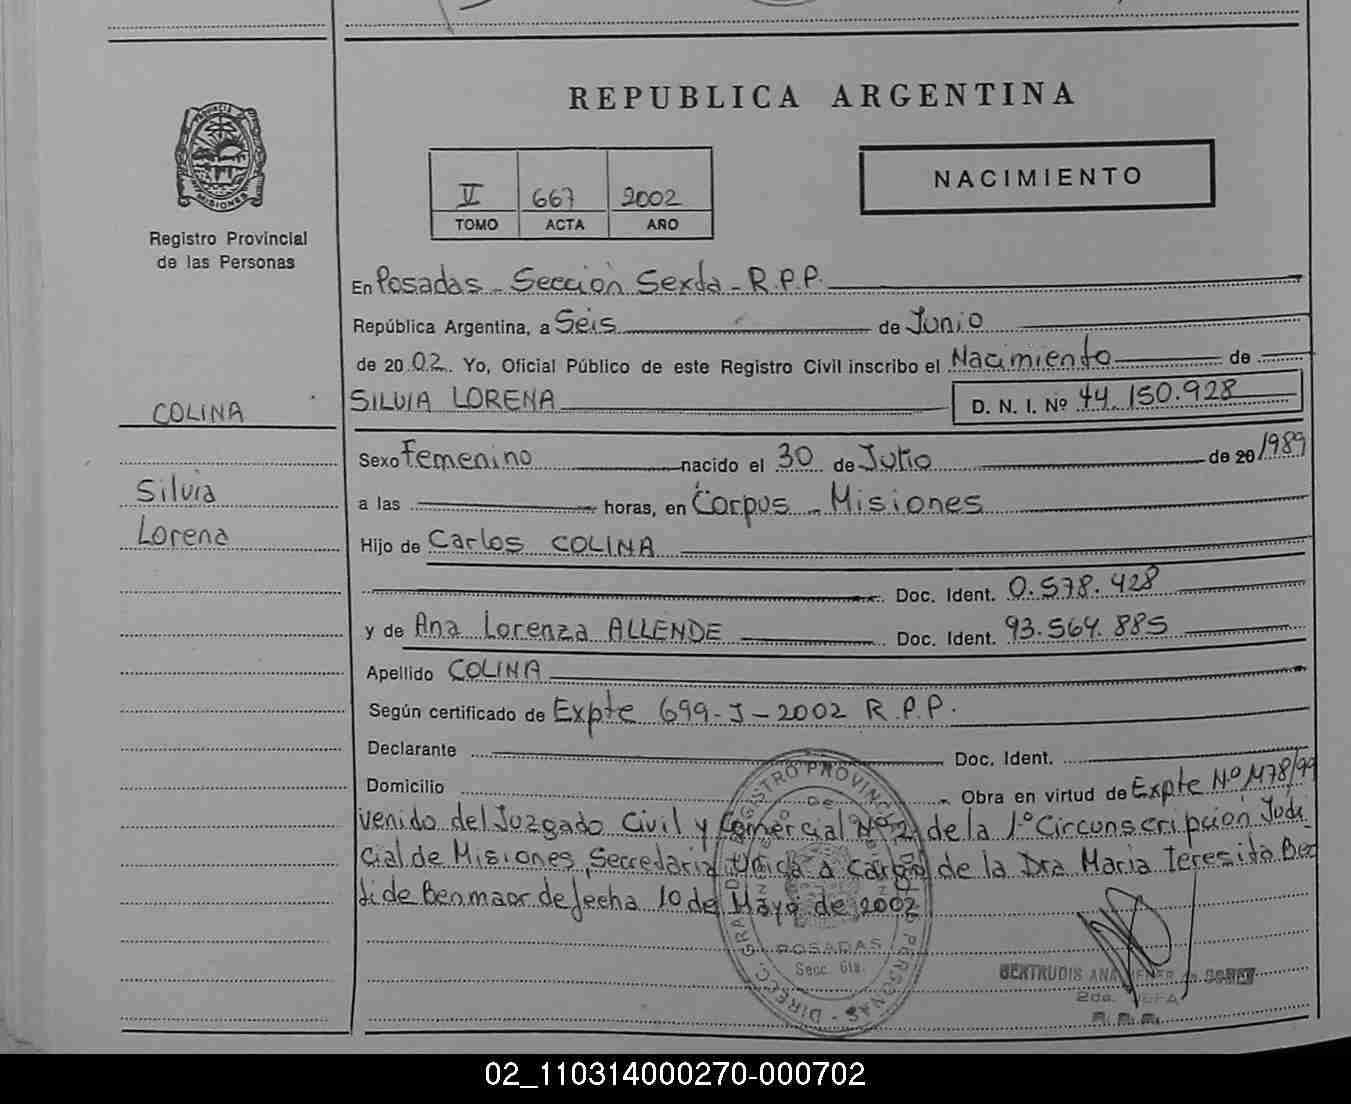 REPUBLICA ARGENTINA
PROVINCIA
MISIONES
Registro Provincial
de las Personas
II 667 2002
TOMO ACTA AÑO
NACIMIENTO
En Posadas - Sección Sexta - R.P.P.
República Argentina, a Seis de Junio
de 2002. Yo, Oficial Público de este Registro Civil inscribo el Nacimiento de
COLINA
SILVIA LORENA D. N. I. Nº 44.150.928
Sexo Femenino nacido el 30 de Julio de 20 1989
Silvia
a las horas, en Corpus - Misiones
Lorena
Hijo de Carlos COLINA
Doc. Ident. 0.578.428
y de Ana Lorenza ALLENDE Doc. Ident. 93.564.885
Apellido COLINA
Según certificado de Expte 699-J-2002 R.P.P.
Declarante Doc. Ident.
Domicilio Obra en virtud de Expte Nº 1178/99
venido del Juzgado Civil y Comercial Nº 2 de la 1º Circunscripción Judi
cial de Misiones, Secretaria Unica a Cargo de la Dra Maria Teresita
de Benmaor de fecha 10 de Mayo de 2002
DIRECC. GRAL. REGISTRO PROVINCIAL DE PERSONAS
POSADAS
Secc. 6ta.
GERTRUDIS ANA de
2da. JEFA
R.P.P.
02_110314000270-000702